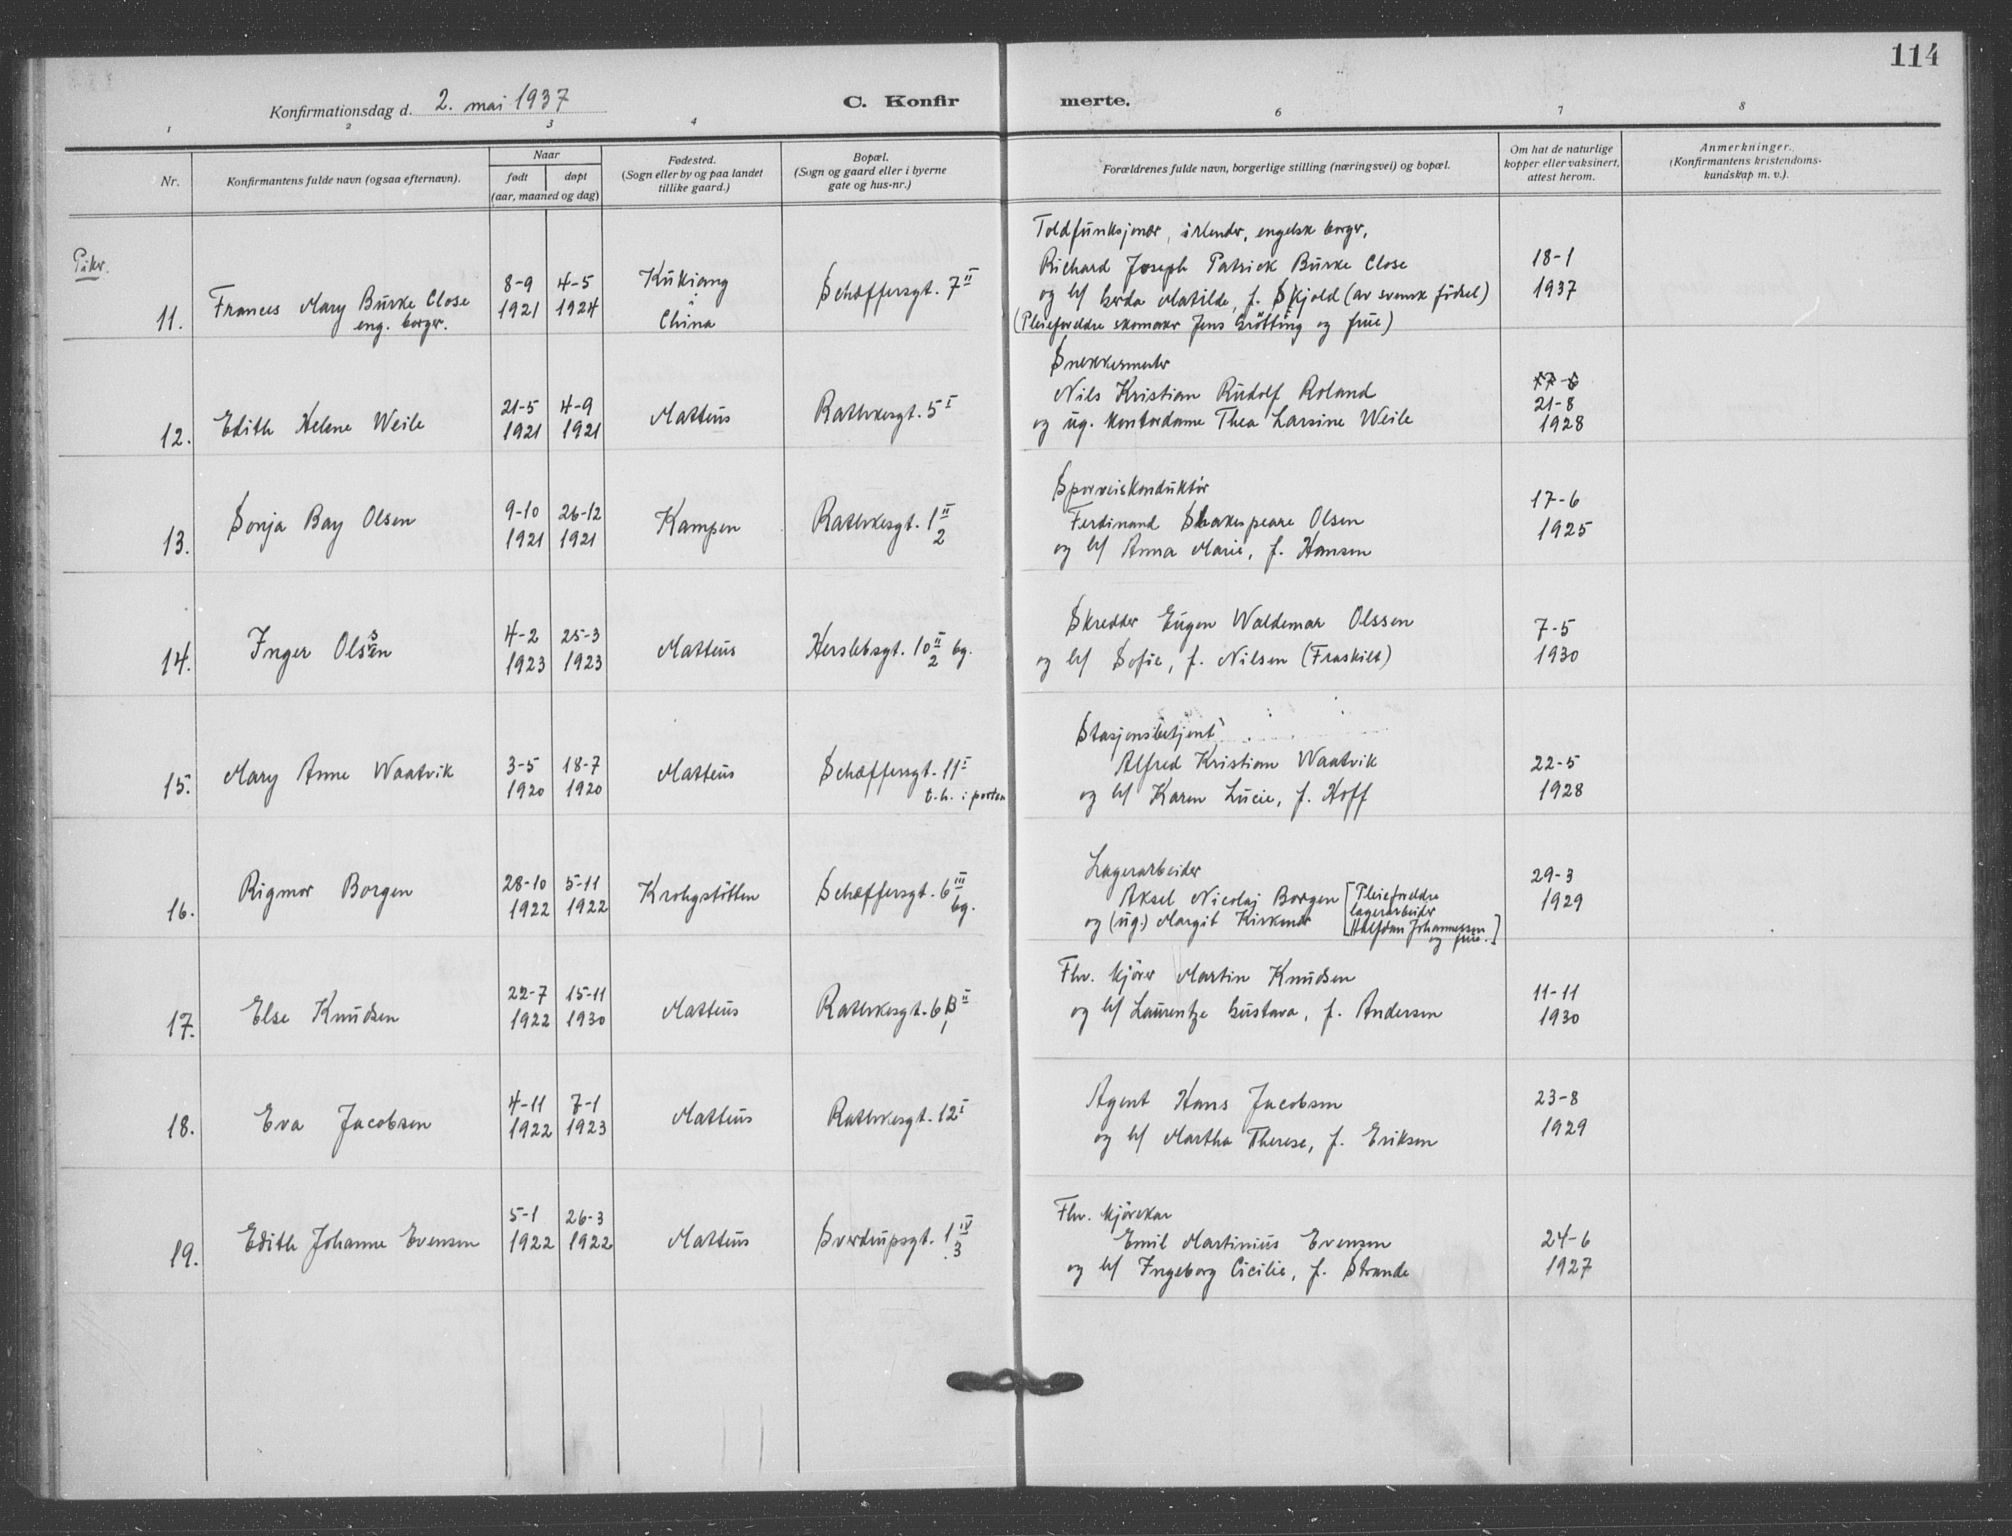 114
Konfirmationsdag d. 2. mai 1937
C. Konfir merte.
1 2 3 4 6 7 8
Nr.
Konfirmantens fulde navn (ogsaa efternavn).
Naar
født døpt
(aar, maaned og dag)
Fødested.
(Sogn eller by og paa landet
tillike gaard.)
Bopæl.
(Sogn og gaard eller i byerne
gate og hus-nr.)
Forældrenes fulde navn, borgerlige stilling (næringsvei) og bopæl.
Om hat de naturlige
kopper eller vaksinert,
attest herom.
Anmerkninger.
(Konfirmantens kristendoms-
kundskap m. v.).
Piker.
11.
Frances Mary Burke Close
eng. borger.
8-9 4-5
1921 1924
Kukiang
i
China
Schæffersgt. 7 II
Toldfunksjonær, irlender, engelsk borger,
Richard Joseph Patrick Burke Close
og h/ Gerda Matilde, f. Skjold (av svensk fødsel)
(Pleieforeldre skomaker Jens Grötting og frue)
18-1
1937
12.
Edith Helene Weile
21-5 4-9
1921 1921
Matteus
Rathkesgt. 5 I
Snekkermester
Nils Kristian Rudolf Roland
og ug. kontordame Thea Larsine Weile
21-8
1928
13.
Sonja Bay Olsen
9-10 26-12
1921 1921
Kampen
Rathkesgt. 1 II
2
Sporveiskonduktör
Ferdinand Shakespeare Olsen
og h/ Anna Marie, f. Hansen
17-6
1925
14.
Inger Olssen
4-2 25-3
1923 1923
Matteus
Herslebsgt. 10 II bg.
2
Skredder Eugen Waldemar Olssen
og h/ Sofie, f. Nilsen (Fraskilt)
7-5
1930
15.
Mary Anne Waatvik
3-5 18-7
1920 1920
Matteus
Schæffersgt. 11 I
t.h. i porten
Stasjonsbetjent
Alfred Kristian Waatvik
og h/ Karen Lucie, f. Hoff
22-5
1928
16.
Rigmor Borgen
28-10 5-11
1922 1922
Krohgstötten
Schæffersgt. 6 III
bg.
Lagerarbeider
Aksel Nicolaj Borgen
og (ug.) Margit Kirkemör
[Pleieforeldre
lagerarbeider
Halfdan Johannessen
og frue.]
29-3
1929
17.
Else Knudsen
22-7 15-11
1922 1930
Matteus
Rathkesgt. 6 B II
1
Fhv. kjörer Martin Knudsen
og h/ Laurentze Gustava, f. Andersen
11-11
1930
18.
Eva Jacobsen
4-11 7-1
1922 1923
Matteus
Rathkesgt. 12 I
Agent Hans Jacobsen
og h/ Martha Therese, f. Eriksen
23-8
1929
19.
Edith Johanne Evensen
5-1 26-3
1922 1922
Matteus
Sverdrupsgt. 1 IV
3
Fhv. kjörekar
Emil Martinius Evensen
og h/ Ingeborg Cicilie, f. Strande
24-6
1927